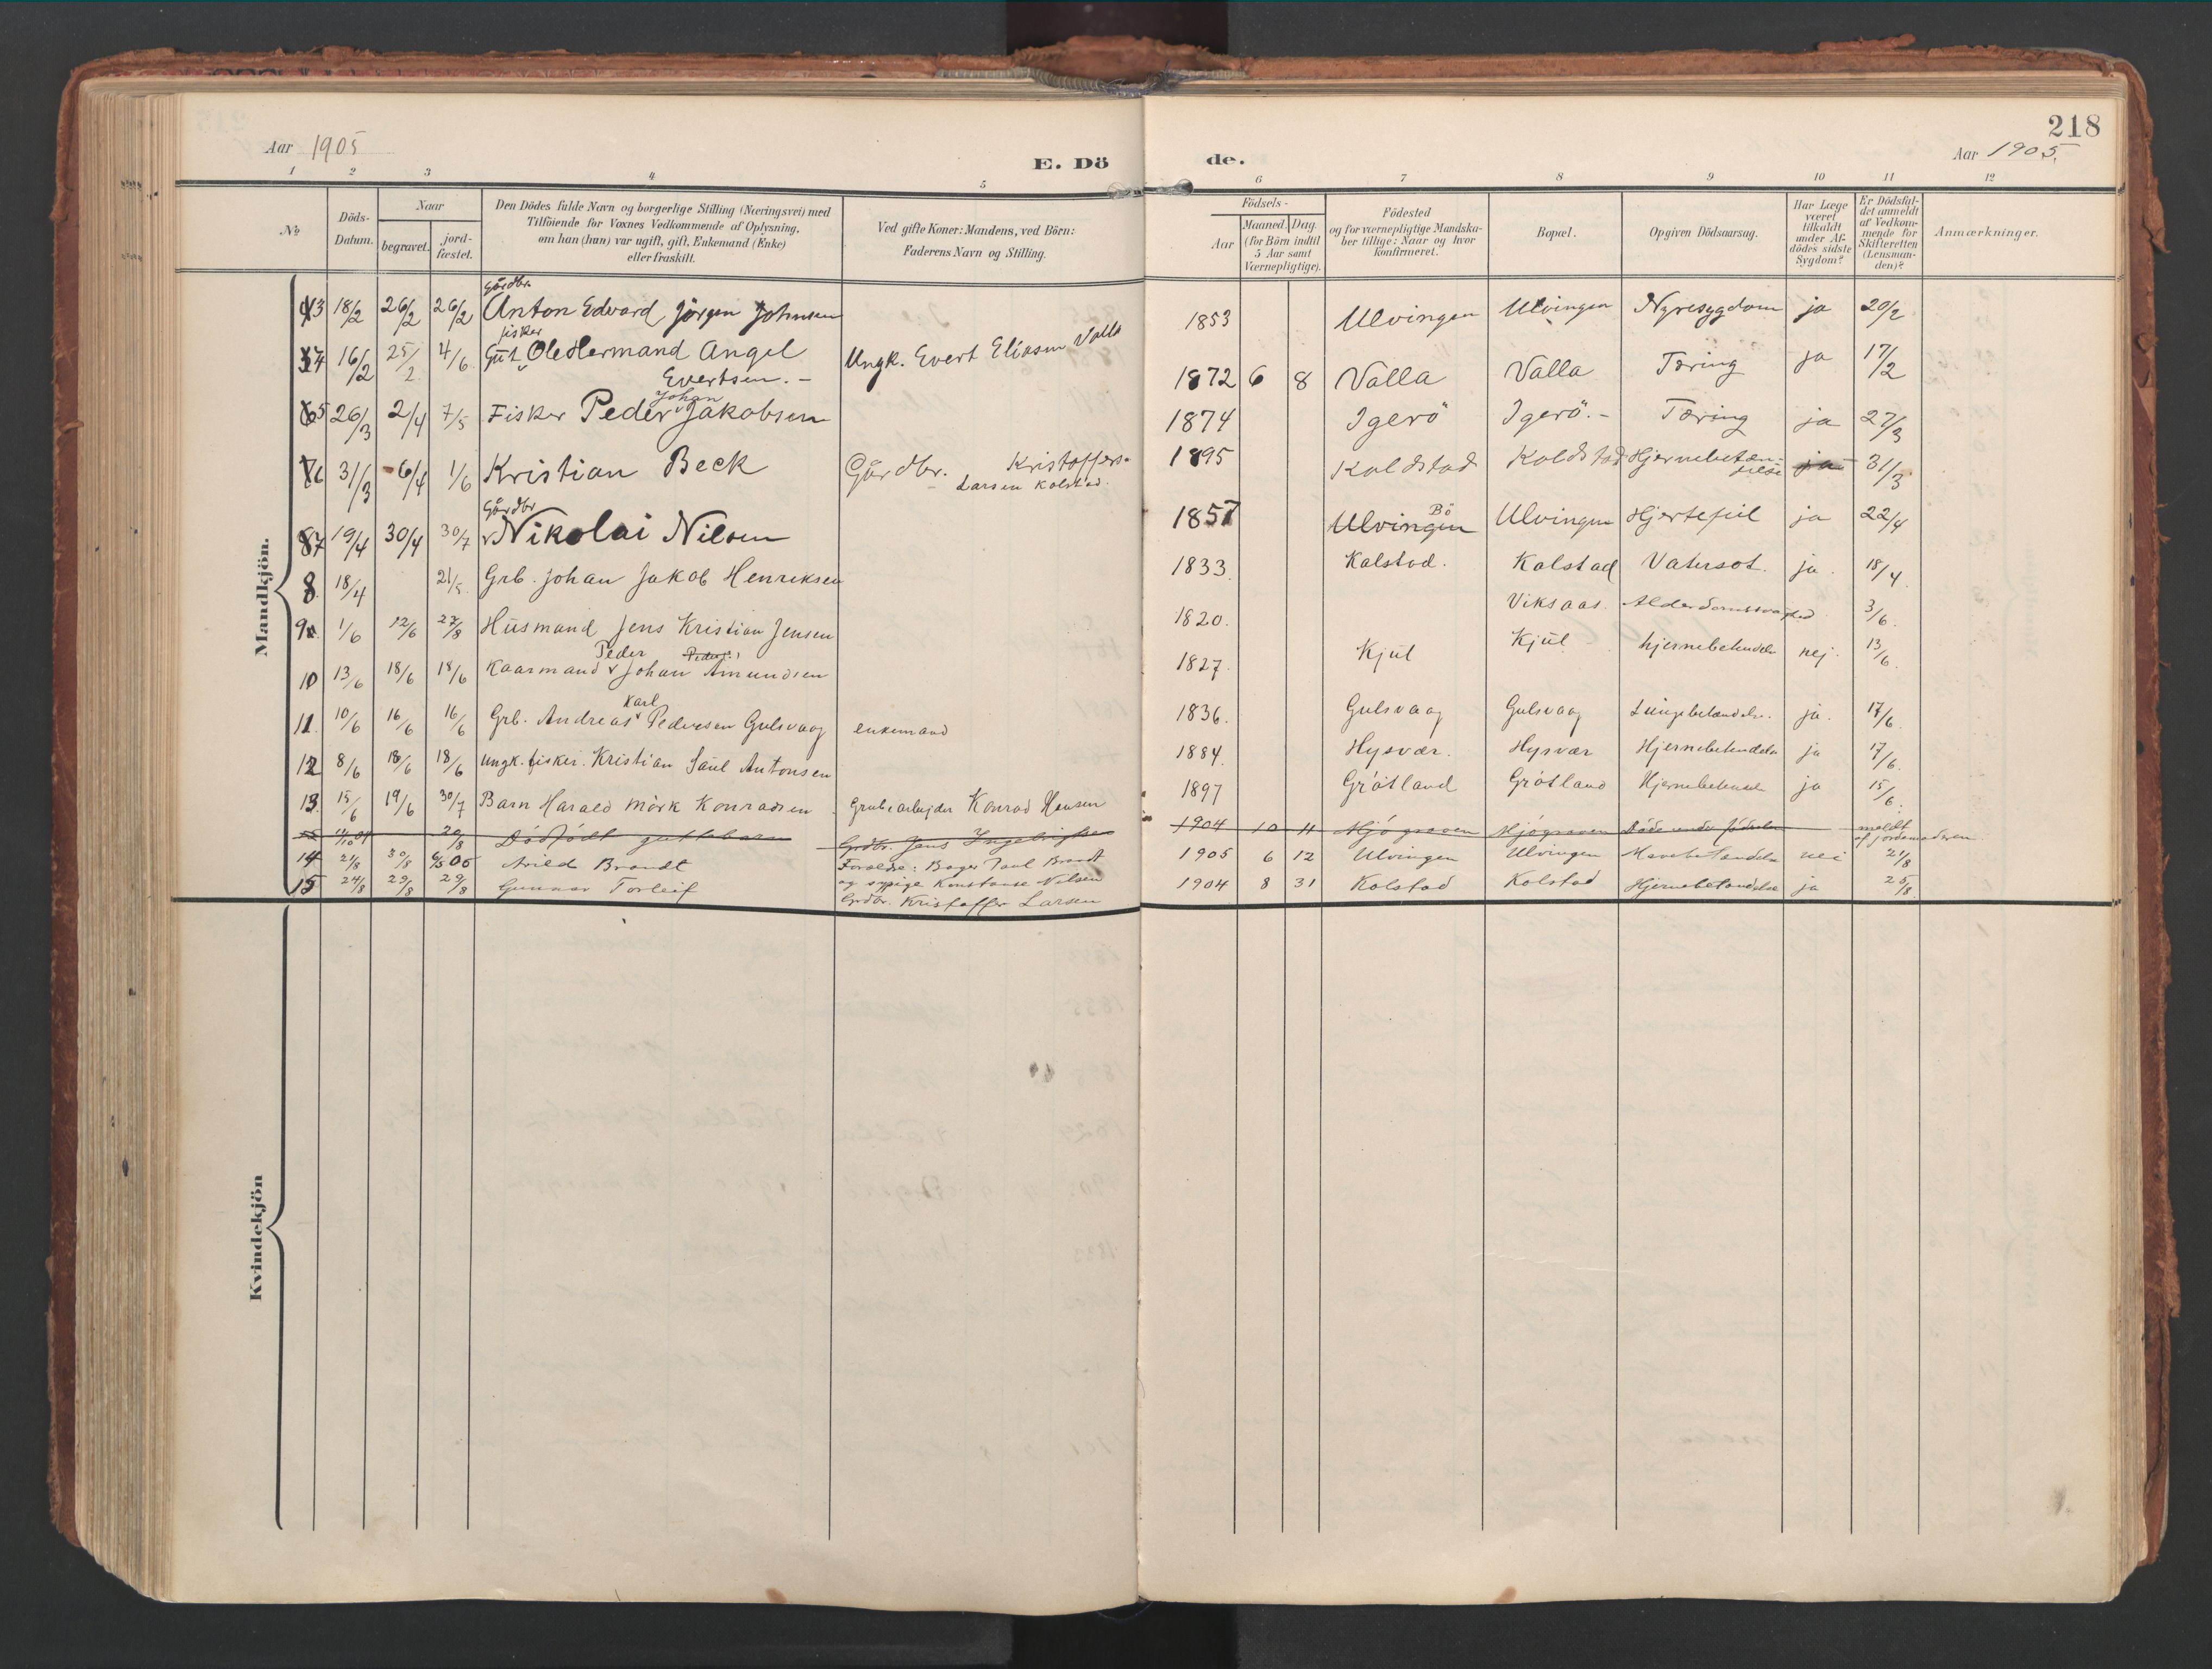 218
Aar 1905
E. Dö
de.
Aar 1905.
1 2 3 4 5 6 7 8 9 10 11 12
No
Döds-Datum.
Naar
begravet.
jord-fæstet.
Den Dödes fulde Navn og borgerlige Stilling (Næringsvei) med
Tilföiende for Voxnes Vedkommende af Oplysning,
om han (hun) var ugift, gift, Enkemand (Enke)
eller fraskilt.
Ved gifte Koner: Mandens, ved Börn:
Faderens Navn og Stilling.
Födsels-
Aar
Maaned. Dag.
(for Börn indtil
5 Aar samt
Værnepligtige).
Födested
og for værnepligtige Mandska-
ber tillige: Naar og hvor
konfirmeret.
Bopæl.
Opgiven Dödsaarsag.
Har Læge
været
tilkaldt
under Af-
dödes sidste
Sygdom?
Er Dödsfal-
det anmeldt
af Vedkom-
mende for
Skifteretten
(Lensman-
den)?
Anmærkninger.
Mandkjön.
Gårdbr.
3 18/2 26/2 26/2 Anton Edvard Jörgen Johnsen 1853 Ulvingen Ulvingen Nyresygdom ja 20/2
fisker
4 16/2 25/2 4/6 Gut Ole Hermand Angel Ungk. Evert Eliasen Valla 1872 6 8 Valla Valla Tæring ja 17/2
Evertsen. –
Johan
5 26/3 2/4 7/5 Fisker Peder Jakobsen 1874 Igerö Igerö.- Tæring ja 27/3
6 31/3 6/4 1/6 Kristian Beck Gårdbr. Kristoffer 1895 Koldstad Koldstad Hjernebetæn- ja 31/3
Larsen Kolstad. delse
Gårdbr Bö
7 19/4 30/4 30/7 Nikolai Nilsen 1857 Ulvingen Ulvingen Hjertefeil ja 22/4
8 18/4 21/5 Grb. Johan Jakob Henriksen 1833. Kalstad. Kalstad Vatersot. ja. 18/4.
9 1/6 12/6 27/8 Husmand Jens Kristian Jensen 1820. Viksaas. 3/6.
Peder
10 13/6 18/6 18/6 Kaarmand Johan Amundsen 1827. Kjul Kjul – nej. 13/6.
Karl
11 10/6 16/6 16/6 Grb. Andreas Pedersen Gulsvaag enkemand 1836. Gulsvaag Gulsvaag ja. 17/6.
12 8/6 18/6 18/6 Ungk. fisker. Kristian Saul Antonsen 1884. Hysvær. Hysvær ja 17/6.
13. 15/6 19/6 30/7 Barn Harald Mörk Konradsen Grubearbejder Konrad Hansen 1897 Grötland Grötland ja 15/6.
20/8 Dödfödt guttebarn Grdbr. Jens Ingebrigtsen 1904 10 11 Mjögraven Mjögraven Döde under födselen meldt
af jordemoderen
14 21/8 30/8 Arild Brandt Forældre: Bager Paul Brandt 1905 6 12 Ulvingen Ulvingen Mavebetændelse nei 21/8
og sypige Konstanse Nilsen
15 24/8 29/8 29/8 Gunnar Torleif Grdbr. Kristoffer Larsen 1904 8 31 Kolstad Kolstad Hjernebetændelse ja 25/8
Kvindekjön